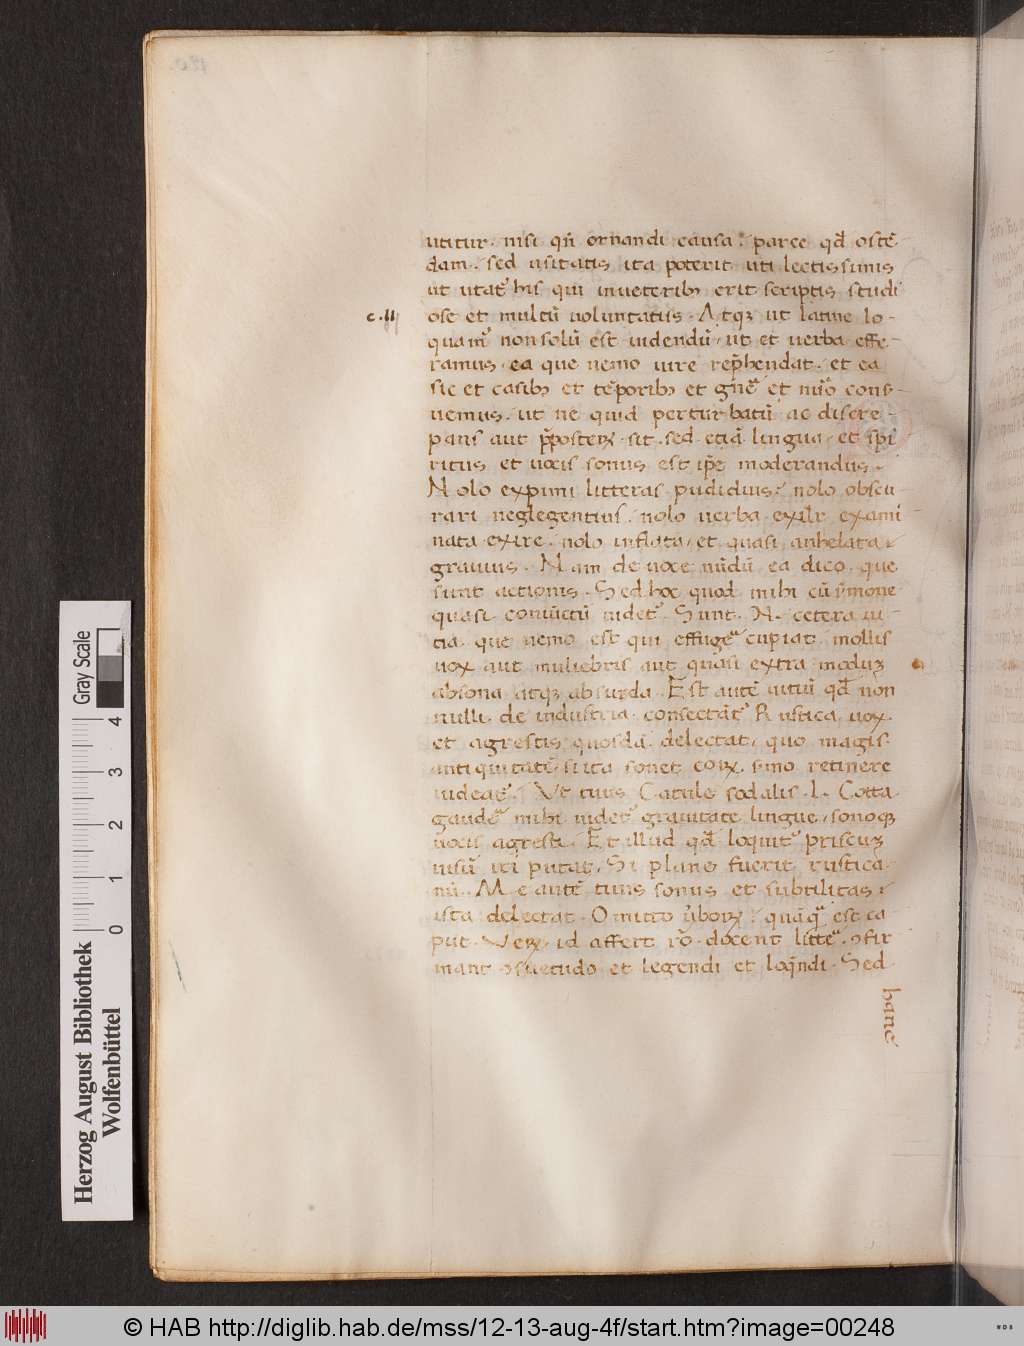 utitur. nisi qn̄ ornandi causa. parce qđ ostē-
dam. sed usitatis ita poterit uti lectissimis
ut utat᷑ his qui inueterib; erit scriptis studi
c. 11
ose et multū uoluntatus. Atq; ut latine lo-
quam᷑ non solū est uidendū, ut et uerba effe-
ramus, ea que nemo iure rep̄hendat. et ea
sic et casib; et tēporib; et gñe et nūo cons̄-
uemus. ut ne quid perturbatū ac discre-
pans aut p̄posteꝝ sit. sed etiā lingua, et spi
ritus et uocis sonus est ip̄e moderandus.
Nolo exprimi litteras putidius. nolo obscu
rari neglegentius. nolo uerba exilr̄ exami
nata exire. nolo inflata, et quasi anhelata
grauius. Nam de uoce nūdū ea dico, que
sunt actionis. Sed hoc quod mihi cū s̄mone
quasi coniūctū uidet᷑. Sunt. N. cetera ui-
tia, que nemo est qui effuge᷑ cupiat. mollis
uox aut muliebris aut quasi extra moduꝫ
absona atq; absurda. Est autē uitiū qđ non
nulli de industria consectāt᷑. Rustica uox
et agrestis quosdā delectat, quo magis
antiquitatē, si ita sonet eoꝝ. s̄mo retinere
uideat᷑. Ut tuus Catule sodalis. L. Cotta
gaude᷑ mihi uidet᷑ grauitate lingue, sonoq;
uocis agresti. Et illud qđ loquit᷑ priscuꝫ
uisū iri putat, Si plane fuerit rustica-
nū. Me autē tuus sonus et subtilitas
ista delectat. Omitto ūboꝝ. quāq᷑ est ca
put. Veꝝ id affert rō. docent litte᷑. ↄfir
mant ↄsuetudo et legendi et loq̄ndi. Sed
hanc
Herzog August Bibliothek
Wolfenbüttel
0 1 2 3 4
Gray Scale
© HAB http://diglib.hab.de/mss/12-13-aug-4f/start.htm?image=00248